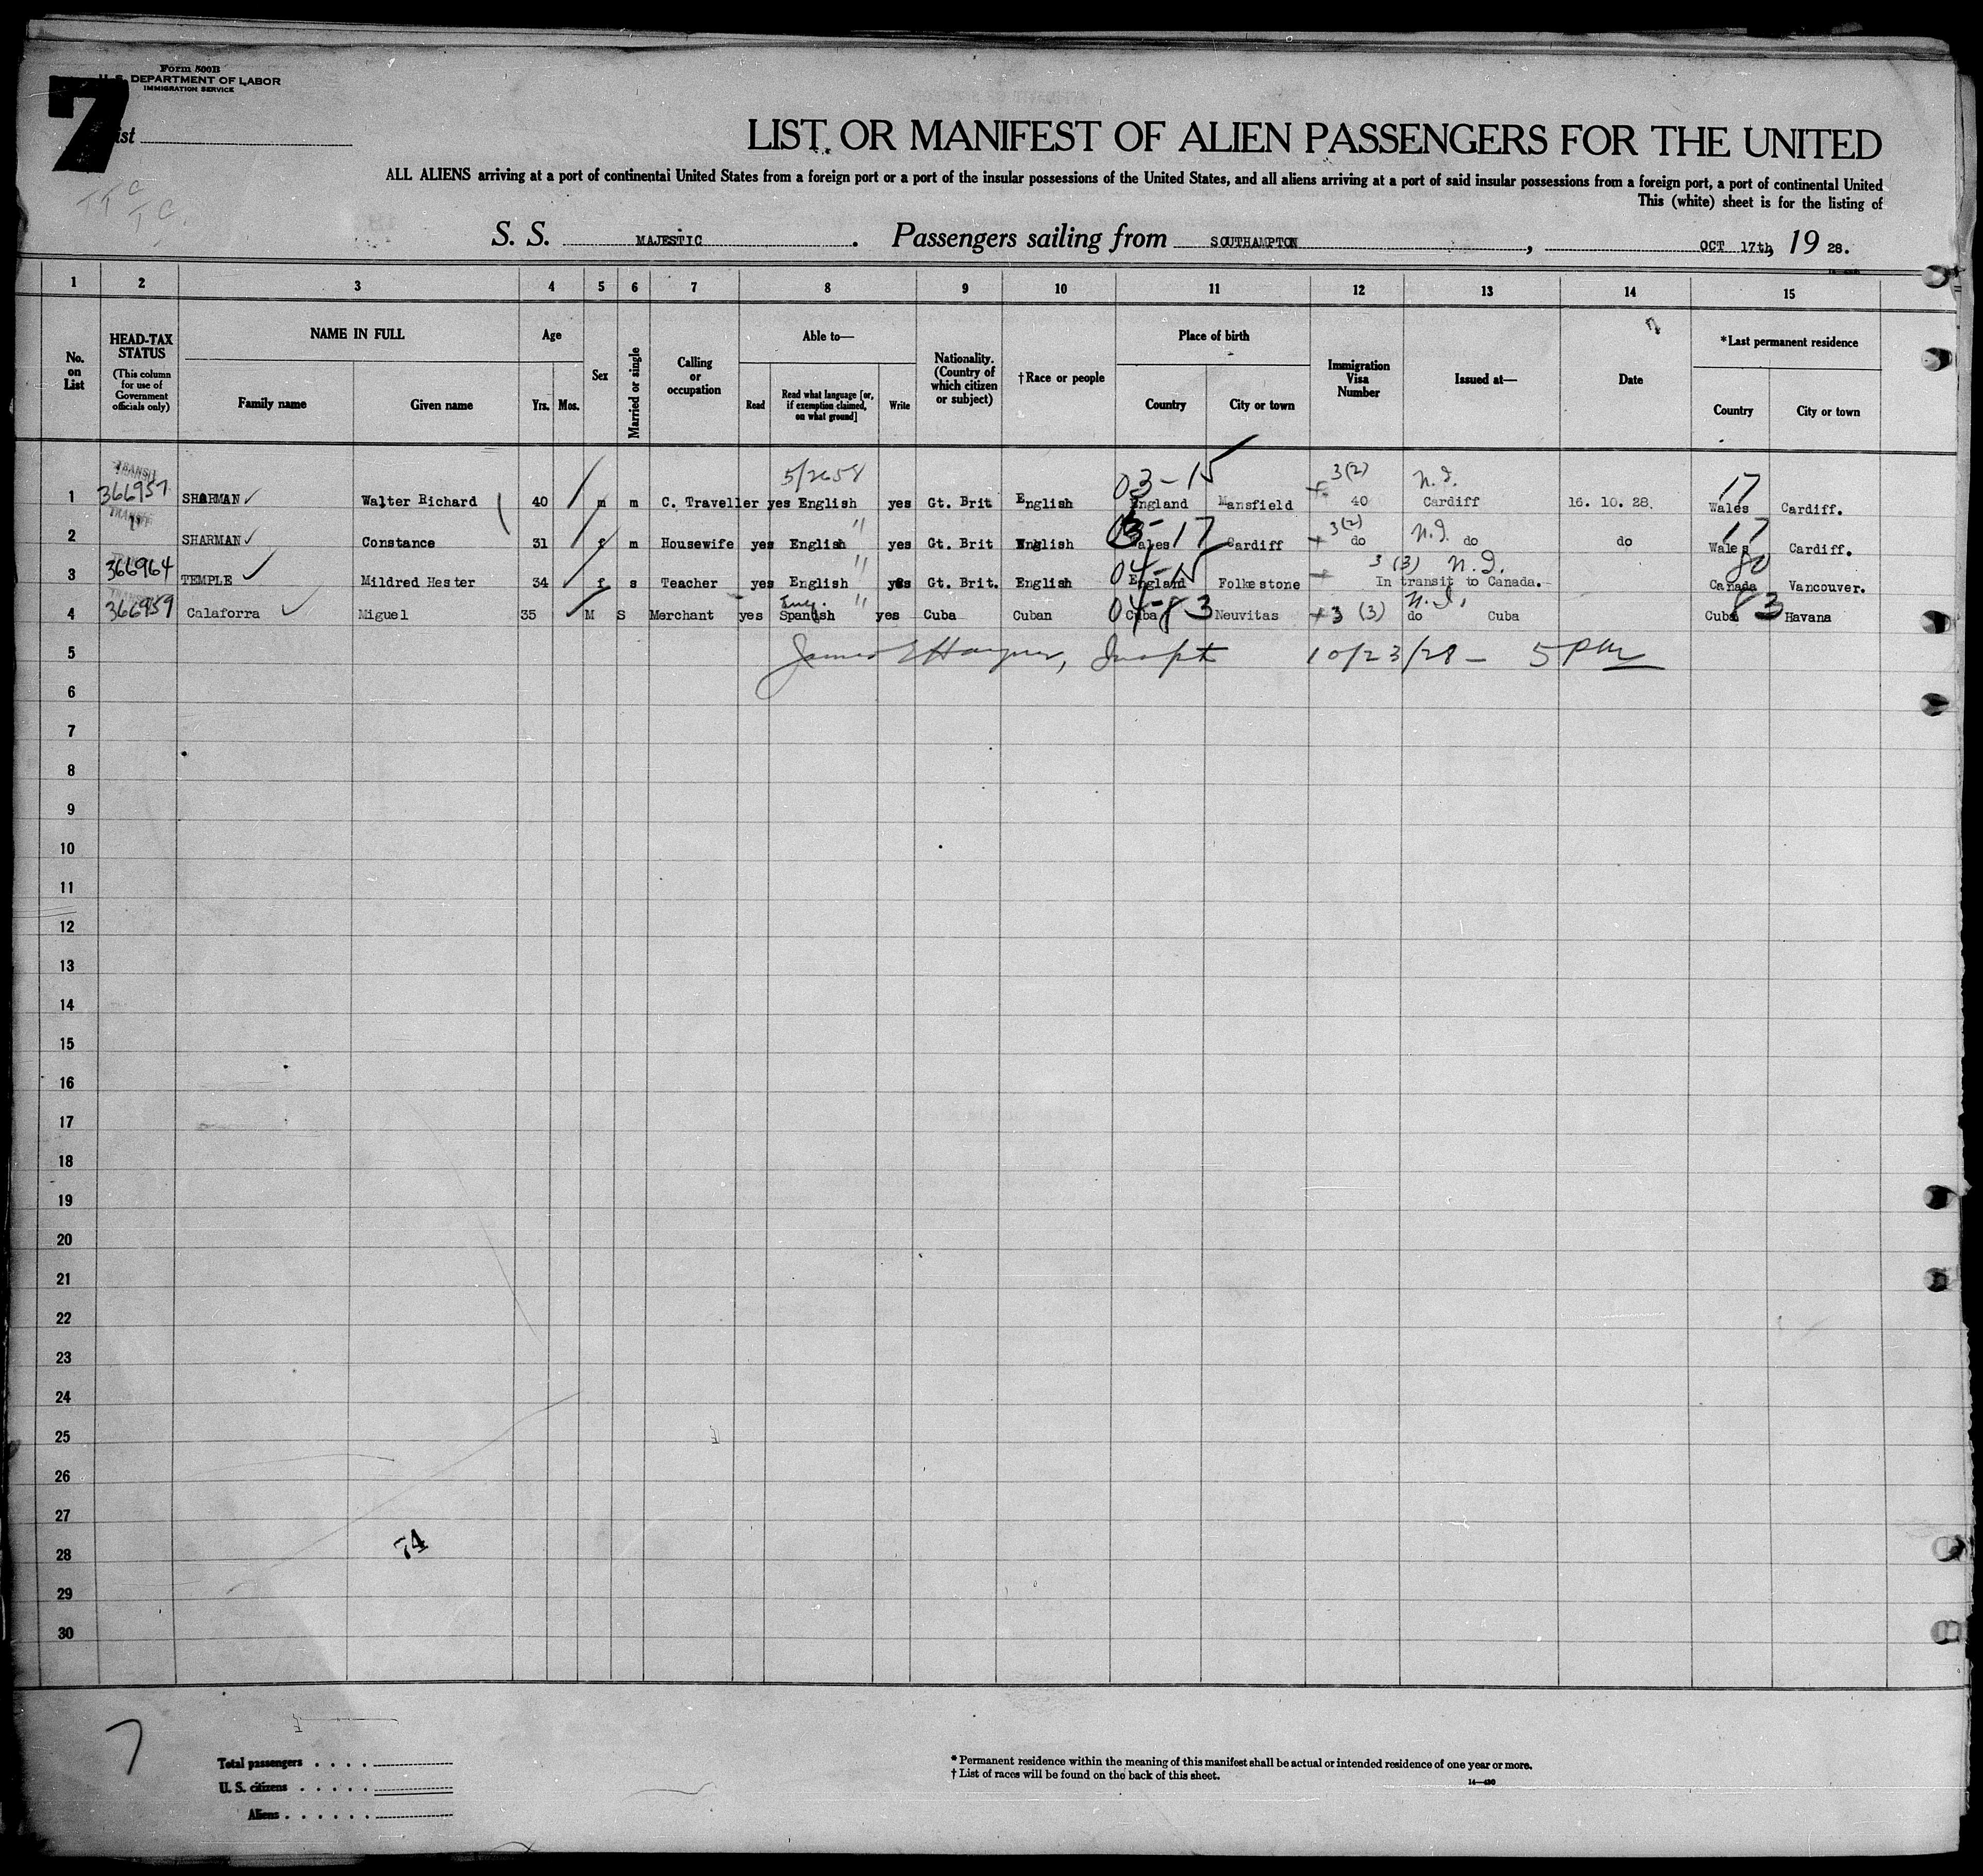 Form 500B
U. S. DEPARTMENT OF LABOR
IMMIGRATION SERVICE
7
List
LIST OR MANIFEST OF ALIEN PASSENGERS FOR THE UNITED
ALL ALIENS arriving at a port of continental United States from a foreign port or a port of the insular possessions of the United States, and all aliens arriving at a port of said insular possessions from a foreign port, a port of continental United
This (white) sheet is for the listing of
S. S. MAJESTIC. Passengers sailing from SOUTHAMPTON, OCT 17th, 19 28.
1 2 3 4 5 6 7 8 9 10 11 12 13 14 15
No. on List
HEAD-TAX STATUS (This column for use of Government officials only)
NAME IN FULL
Family name Given name
Age
Yrs. Mos.
Sex
Married or single
Calling or occupation
Able to—
Read Read what language [or, if exemption claimed, on what ground] Write
Nationality. (Country of which citizen or subject)
†Race or people
Place of birth
Country City or town
Immigration Visa Number
Issued at—
Date
*Last permanent residence
Country City or town
TRANSIT 5/2658 03-15 3(2) N.I. 17
1 366957 SHARMAN ✓ Walter Richard 40 m m C. Traveller yes English yes Gt. Brit English England Mansfield 40 Cardiff 16. 10. 28. Wales Cardiff.
TRANSIT " " 17 3(2) N.I. 17
2 SHARMAN ✓ Constance 31 f m Housewife yes English yes Gt. Brit English Wales Cardiff do do do Wales Cardiff.
" 04-15 3 (3) N.I. 80
3 366964 TEMPLE ✓ Mildred Hester 34 f s Teacher yes English yes Gt. Brit. English England Folkestone In transit to Canada. Canada Vancouver.
Eng. " 04-83 3 (3) N.I. 83
4 366959 Calaforra ✓ Miguel 35 M S Merchant yes Spanish yes Cuba Cuban Cuba Neuvitas do Cuba Cuba Havana
5 James Inspt 10/23/28 - 5 PM
6
7
8
9
10
11
12
13
14
15
16
17
18
19
20
21
22
23
24
25
26
27
28
29
30
74
7
Total passengers . . . .
U. S. citizens . . . . .
Aliens . . . . . .
* Permanent residence within the meaning of this manifest shall be actual or intended residence of one year or more.
† List of races will be found on the back of this sheet.
14—430